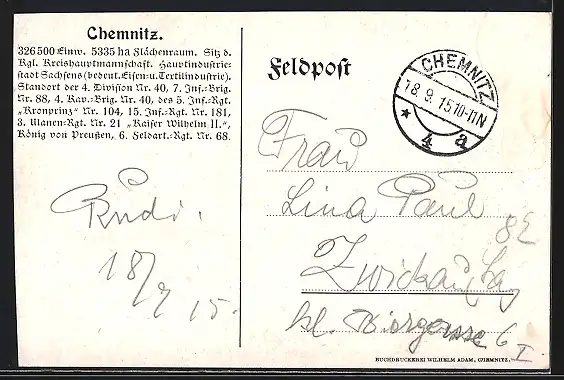 Chemnitz.
326500 Einw. 5335 ha Flächenraum. Sitz d.
Kgl. Kreishauptmannschaft. Hauptindustrie-
stadt Sachsens (bedeut. Eisen- u. Textilindustrie).
Standort der 4. Division Nr. 40, 7. Inf.-Brig.
Nr. 88, 4. Kav.-Brig. Nr. 40, des 5. Inf.-Rgt.
„Kronprinz" Nr. 104, 15. Inf.-Rgt. Nr. 181,
3. Ulanen-Rgt. Nr. 21 „Kaiser Wilhelm II.",
König von Preußen, 6. Feldart.-Rgt. Nr. 68.
Rudi.
18/9 15.
Feldpost
CHEMNITZ
18.9.15.10-11N
* 4 a
Frau
Lina Paul
Zwickau i/Sa
kl. Biergasse 6
I
BUCHDRUCKEREI WILHELM ADAM, CHEMNITZ.